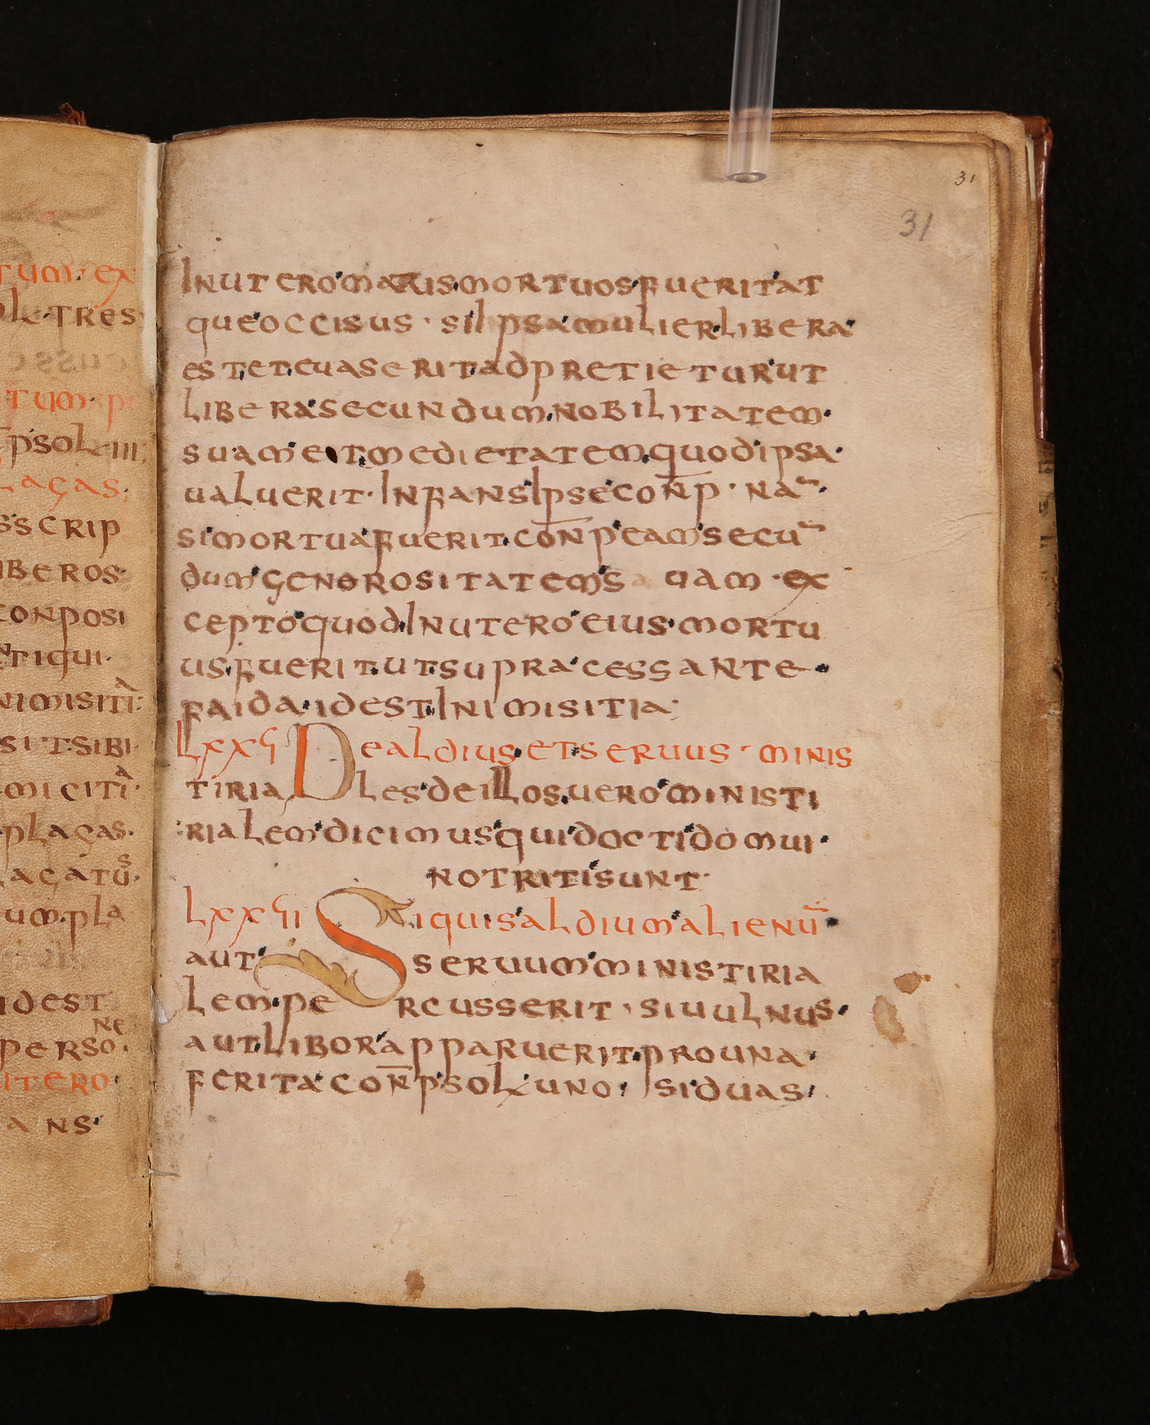 31
31
tum· ex
ol· tres
tum·p
psol·iii;
lagas·
sscrip
iberos·
conposi
tiqui·
nimisitia:
sitsibi·
micitia·
plagas·
agatus·
um·pla
idest
ne
perso·
utero·
ans·
In utero matris mortuos fuerit at
que occisus · si ipsa mulier libera
est et euaserit adpretietur ut
libera secundum nobilitatem·
suam et medietatem quod ipsa·
ualuerit· Infans ipse con̄p· na͞·
si mortua fuerit con̄p eam secu͞
dum generositatem s uam · ex
cepto quod In utero eius mortu
us fuerit ut supra cessante·
faida· id est Inimisitia;
Lxxvi De aldius et seruus · minis
tiria les de illos uero ministi
rialem dicimus qui docti domui·
notriti sunt·
Lxxvii Si quis aldium alienū·
aut seruum ministiria
lem·pe rcusserit · si uulnus·
aut libor apparuerit pro una·
ferita con̄p sol uno· si duas·